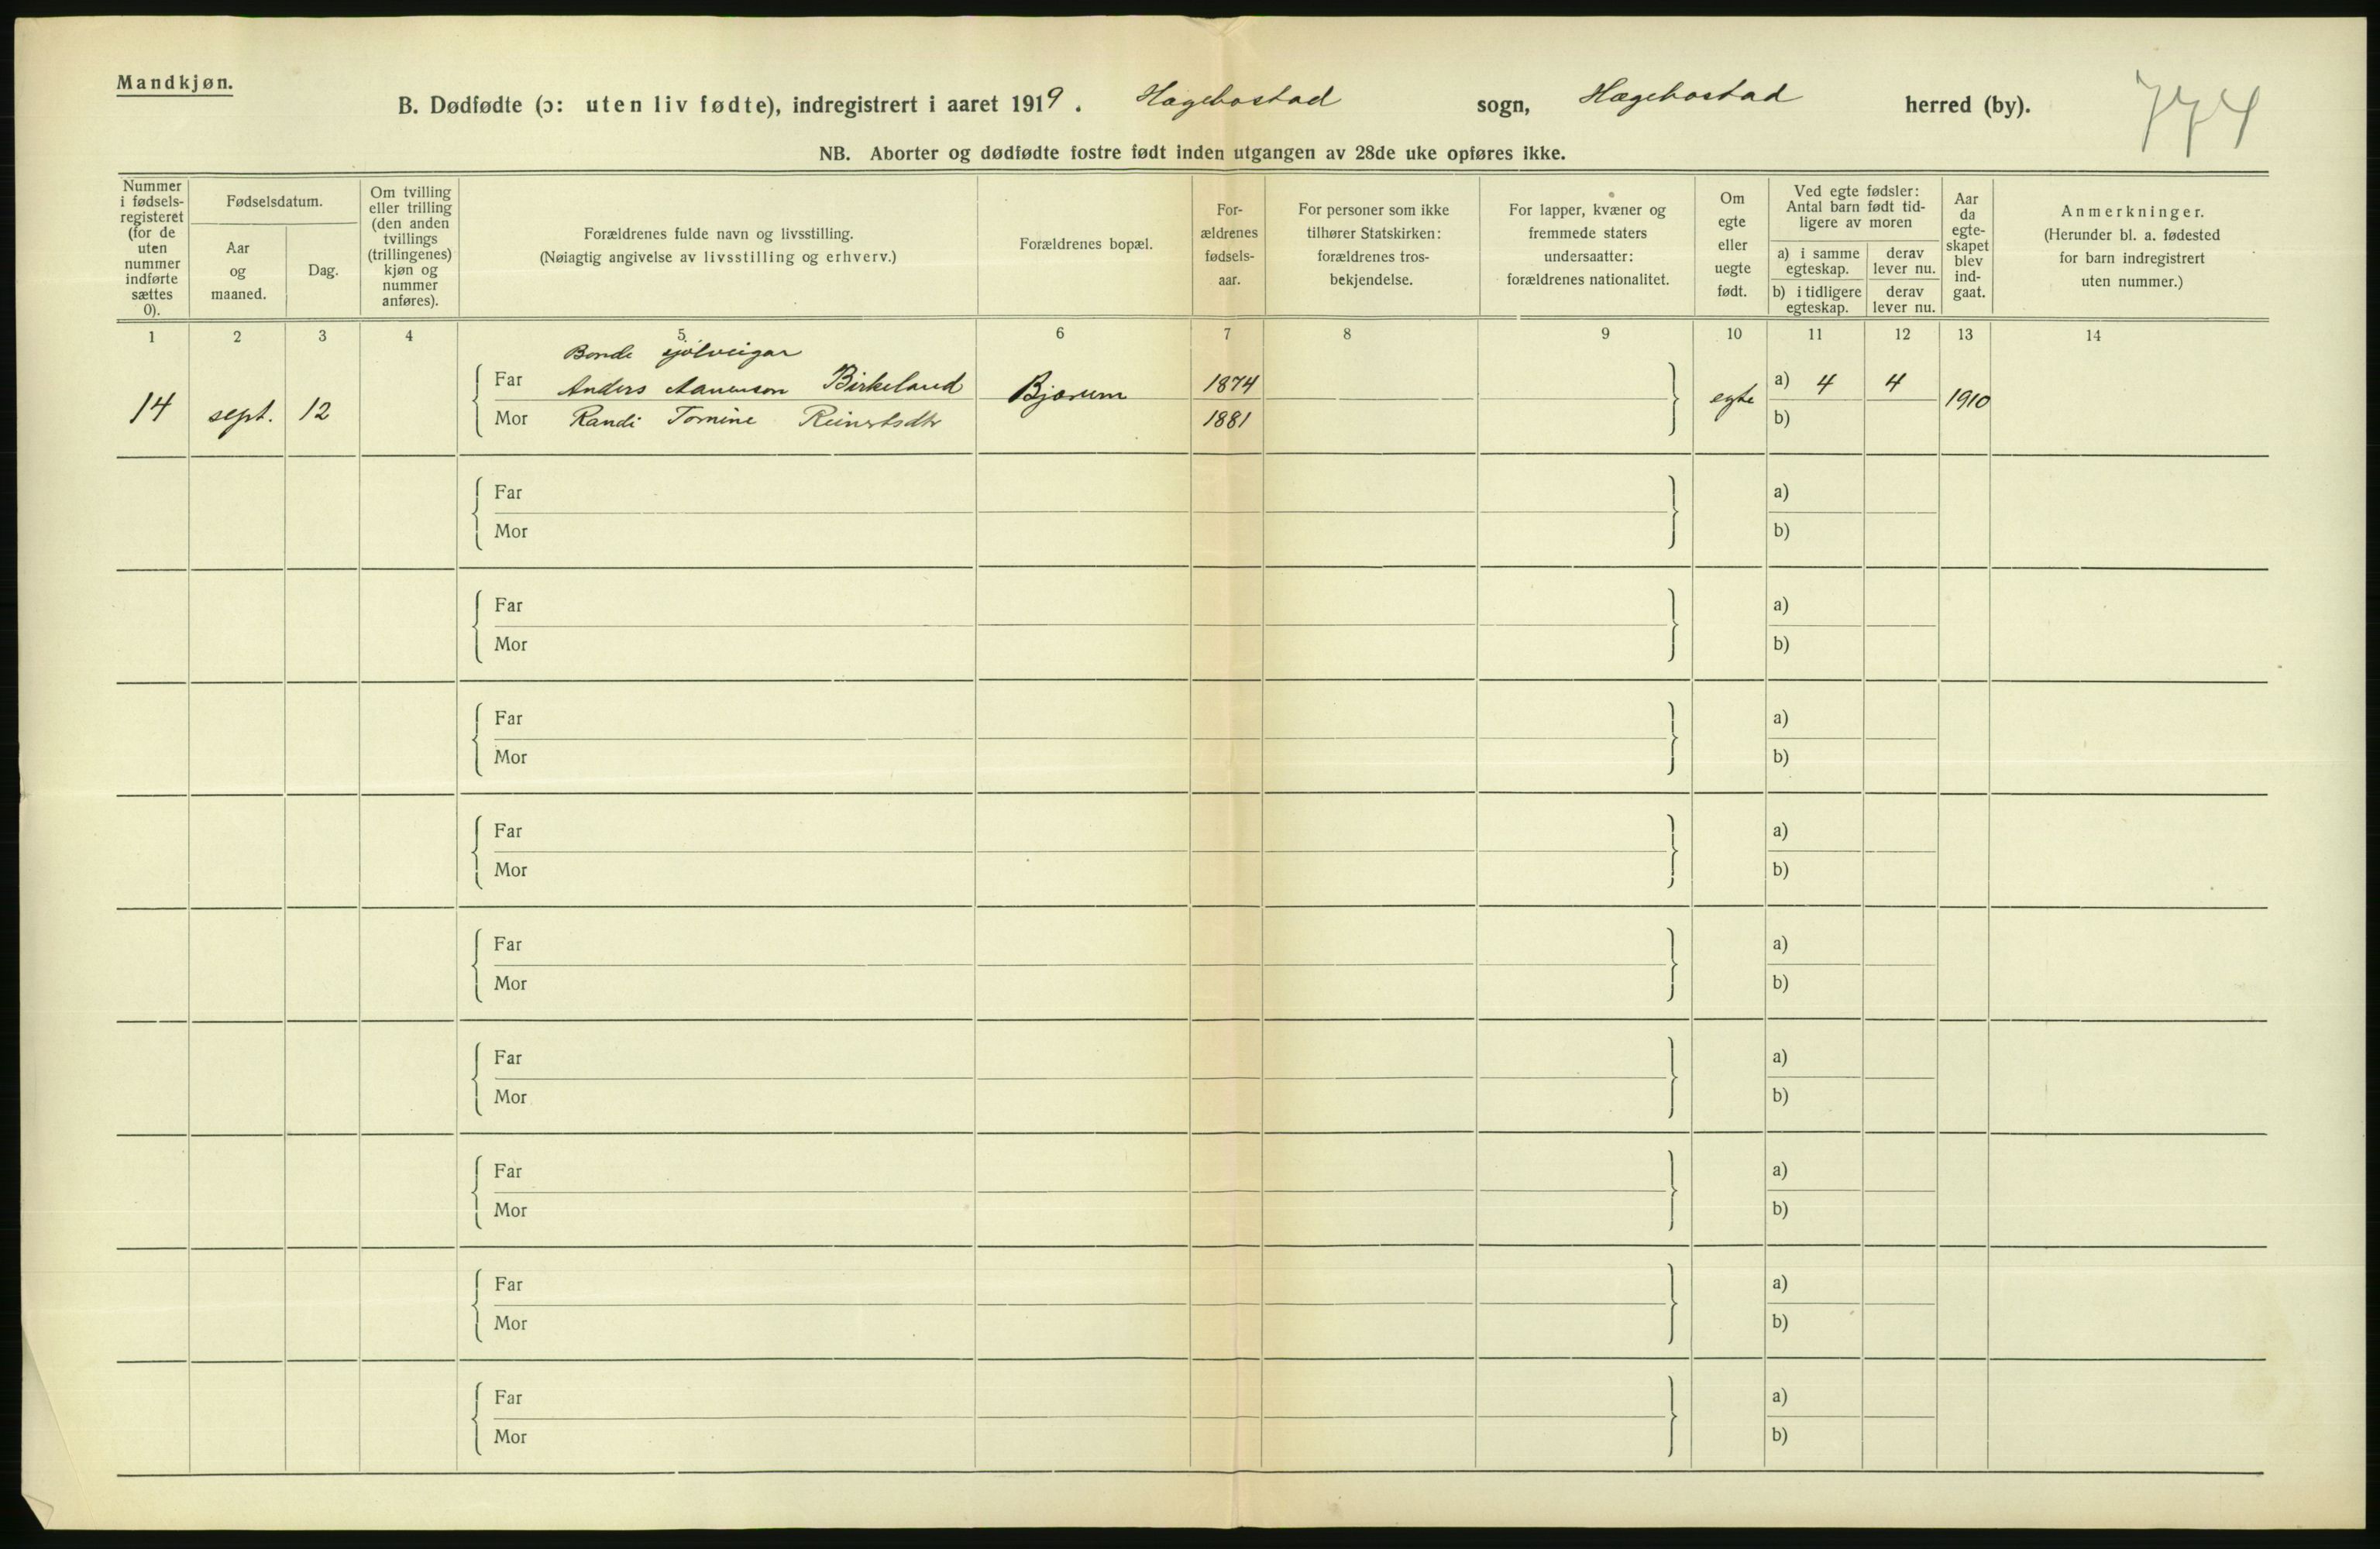 Mandkjøn.
B. Dødfødte (ɔ: uten liv fødte), indregistrert i aaret 1919. Hægebostad sogn, Hægebostad herred (by). 774
NB. Aborter og dødfødte fostre født inden utgangen av 28de uke opføres ikke.
Nummer i fødsels-registeret (for de uten nummer indførte sættes 0).
Fødselsdatum.
Aar og maaned.
Dag.
Om tvilling eller trilling (den anden tvillings (trillingenes) kjøn og nummer anføres).
Forældrenes fulde navn og livsstilling.
(Nøiagtig angivelse av livsstilling og erhverv.)
Forældrenes bopæl.
For-ældrenes fødsels-aar.
For personer som ikke tilhører Statskirken: forældrenes tros-bekjendelse.
For lapper, kvæner og fremmede staters undersaatter: forældrenes nationalitet.
Om egte eller uegte født.
Ved egte fødsler: Antal barn født tid-ligere av moren
a) i samme egteskap.
derav lever nu.
b) i tidligere egteskap.
derav lever nu.
Aar da egte-skapet blev ind-gaat.
Anmerkninger.
(Herunder bl. a. fødested for barn indregistrert uten nummer.)
1 2 3 4 5 6 7 8 9 10 11 12 13 14
Bonde sjølveigar
14 sept. 12 Far Anders Aanenson Birkeland Bjærum 1874 egte a) 4 4 1910
Mor Randi Tomine Reinertsdtr 1881 b)
Far a)
Mor b)
Far a)
Mor b)
Far a)
Mor b)
Far a)
Mor b)
Far a)
Mor b)
Far a)
Mor b)
Far a)
Mor b)
Far a)
Mor b)
Far a)
Mor b)